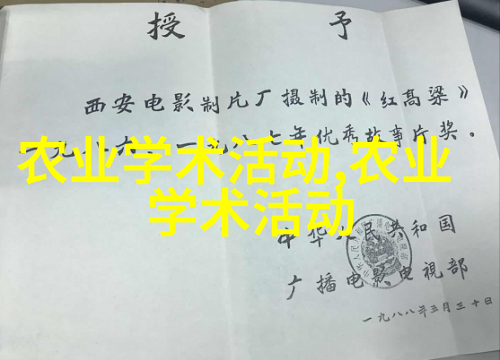 授予
西安电影制片厂摄制的《红高粱》
一九八六—一九八七年优秀故事片奖。
农业学术活动,农业
学术活动
中华人民共和国
广播电影电视部
一九八八年三月三十日